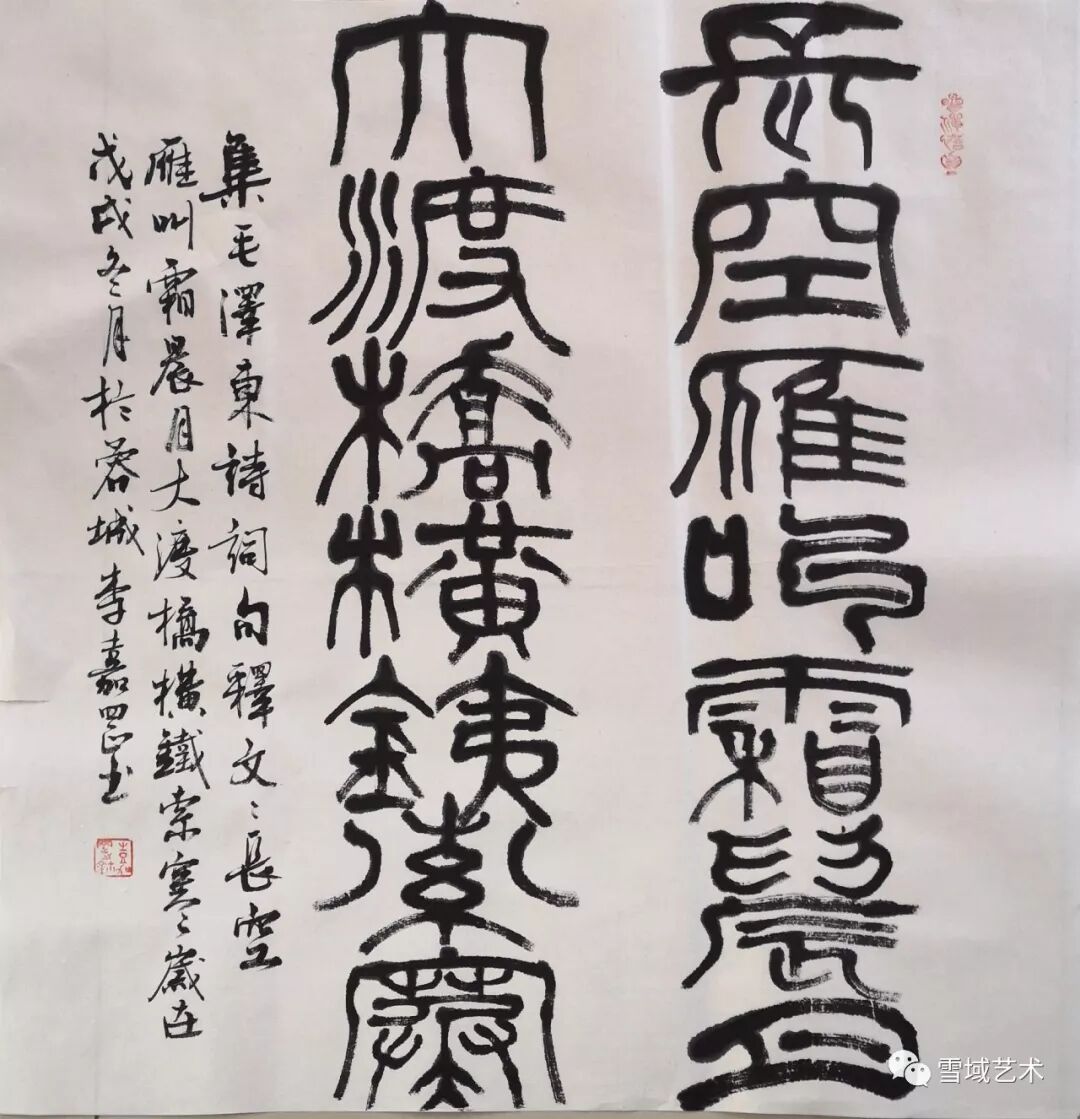 長空雁叫霜晨月
大渡橋橫銕索寒
集毛澤東詩詞句釋文：長空
雁叫霜晨月大渡橋橫鐵索寒：歲在
戊戌冬月於蓉城李嘉罡书
雪域艺术